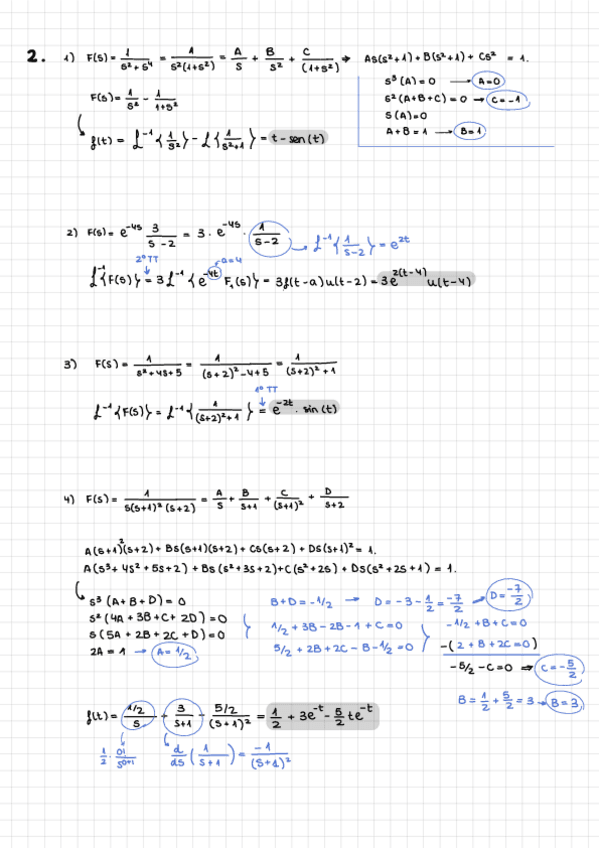 2. 1) F(s) = 1/(s²+s⁴) = 1/(s²(1+s²)) = A/s + B/s² + C/(1+s²) → As(s²+1) + B(s²+1) + Cs² = 1.
s³(A) = 0 → A=0
F(s) = 1/s² - 1/(1+s²)
s²(A+B+C) = 0 → C=-1
s(A)=0
A+B=1 → B=1
f(t) = L⁻¹{1/s²} - L{1/(s²+1)} = t - sen(t)
2) F(s) = e^(-4s) 3/(s-2) = 3 · e^(-4s) · 1/(s-2) → L⁻¹{1/(s-2)} = e^(2t)
2º TT
a=4
L⁻¹{F(s)} = 3L⁻¹{e^(-4t) F₁(s)} = 3f(t-a)u(t-2) = 3e^(2(t-4)) u(t-4)
3) F(s) = 1/(s²+4s+5) = 1/((s+2)²-4+5) = 1/((s+2)²+1)
1º TT
L⁻¹{F(s)} = L⁻¹{1/((s+2)²+1)} = e^(-2t) · sin(t)
4) F(s) = 1/(s(s+1)²(s+2)) = A/s + B/(s+1) + C/(s+1)² + D/(s+2)
A(s+1)²(s+2) + Bs(s+1)(s+2) + Cs(s+2) + Ds(s+1)² = 1.
A(s³+4s²+5s+2) + Bs(s²+3s+2) + C(s²+2s) + Ds(s²+2s+1) = 1.
s³(A+B+D) = 0
B+D = -1/2 → D = -3 - 1/2 = -7/2 → D = -7/2
s²(4A+3B+C+2D)=0
1/2 + 3B - 2B - 1 + C = 0
-1/2 + B + C = 0
s(5A+2B+2C+D)=0
5/2 + 2B + 2C - B - 1/2 = 0
-(2 + B + 2C = 0)
2A = 1 → A = 1/2
-5/2 - C = 0 ⇒ C = -5/2
B = 1/2 + 5/2 = 3 → B = 3
f(t) = (1/2)/s + 3/(s+1) - (5/2)/(s+1)² = 1/2 + 3e^(-t) - 5/2 te^(-t)
1/2 · 0!/s^(0+1)
d/ds (1/(s+1)) = -1/(s+1)²